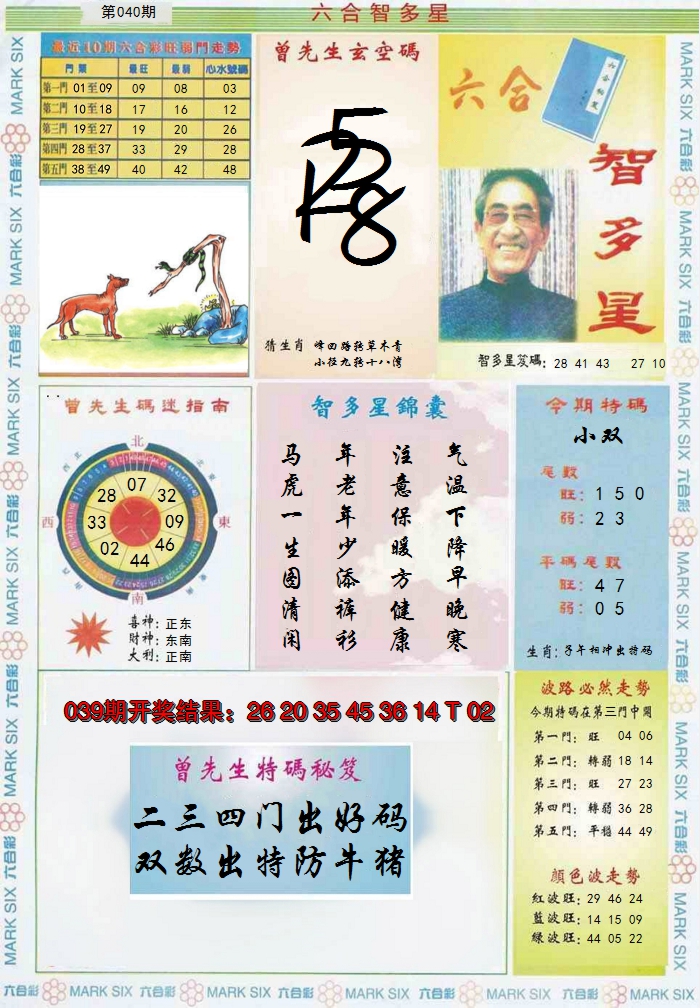 第040期
六合智多星
最近10期六合彩旺弱門走勢
門類 最旺 最弱 心水號碼
第一門 01至09 09 08 03
第二門 10至18 17 16 12
第三門 19至27 19 20 26
第四門 28至37 33 29 28
第五門 38至49 40 42 48
曾先生玄空碼
猜生肖 峰回路转草木青
小径九转十八湾
六合
智多星
智多星笈碼: 28 41 43 27 10
曾先生碼迷指南
北
西
東
南
07
32
09
46
44
02
33
28
喜神: 正东
財神: 东南
大利: 正南
智多星錦囊
气温下降早晚寒
注意保暖方健康
年老年少添裤衫
马虎一生图清闲
今期特碼
小双
尾數
旺: 1 5 0
弱: 2 3
平碼尾數
旺: 4 7
弱: 0 5
生肖: 子午相冲出特码
039期开奖结果: 26 20 35 45 36 14 T 02
曾先生特碼秘笈
二三四门出好码
双数出特防牛猪
波路必然走勢
今期特碼在第三門中開
第一門: 旺 04 06
第二門: 轉弱 18 14
第三門: 旺 27 23
第四門: 轉弱 36 28
第五門: 平穩 44 49
顏色波走勢
紅波旺: 29 46 24
藍波旺: 14 15 09
綠波旺: 44 05 22
六合彩 MARK SIX 六合彩 MARK SIX 六合彩 MARK SIX 六合彩 MARK SIX 六合彩 MARK SIX